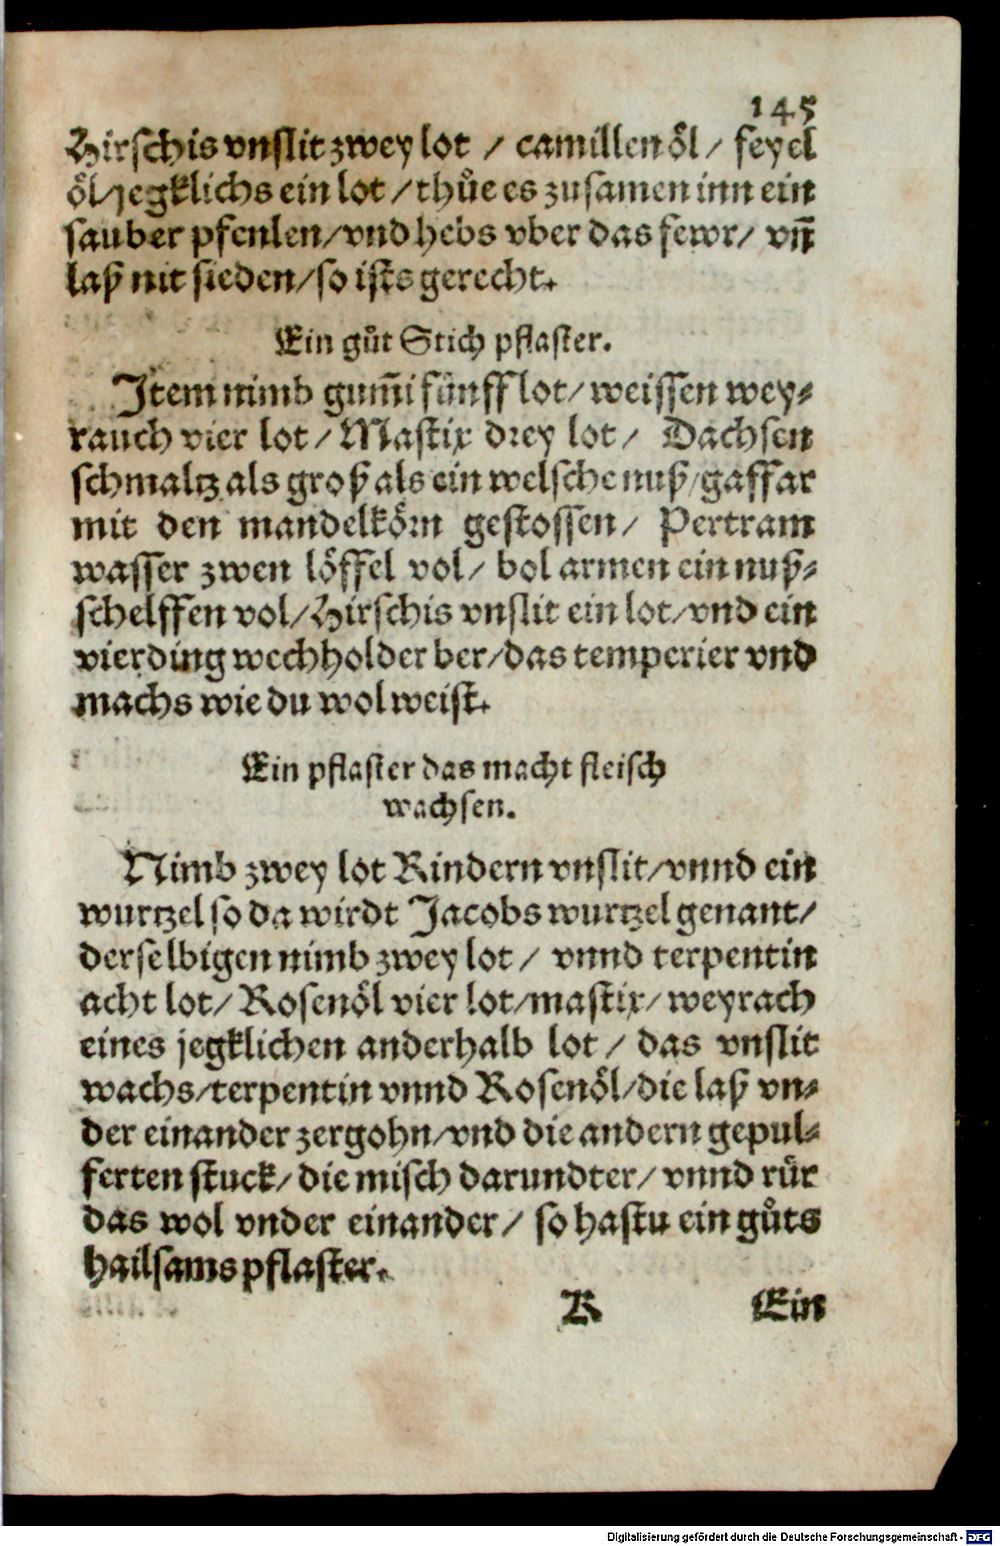 145
Hirschis vnslit zwey lot / camillen öl / feyel
öl / jegklichs ein lot / thůe es zusamen inn ein
sauber pfenlen / vnd hebs vber das fewr / vñ
laß nit sieden / so ists gerecht.
Ein gůt Stich pflaster.
Item nimb gum̃i fünff lot / weissen wey⸗
rauch vier lot / Mastix drey lot / Dachsen
schmaltz als groß als ein welsche nuß / gaffar
mit den mandelkörn gestossen / Pertram
wasser zwen löffel vol / bol armen ein nuß⸗
schelffen vol / Hirschis vnslit ein lot / vnd ein
vierding wechholder ber / das temperier vnd
machs wie du wol weist.
Ein pflaster das macht fleisch
wachsen.
Nimb zwey lot Rindern vnslit / vnnd ein
wurtzel so da wirdt Jacobs wurtzel genant /
derselbigen nimb zwey lot / vnnd terpentin
acht lot / Rosenöl vier lot / mastix / weyrach
eines jegklichen anderhalb lot / das vnslit
wachs / terpentin vnnd Rosenöl / die laß vn⸗
der einander zergohn / vnd die andern gepul⸗
ferten stuck / die misch darundter / vnnd rür
das wol vnder einander / so hastu ein gůts
hailsams pflaster.
K Ein
Digitalisierung gefördert durch die Deutsche Forschungsgemeinschaft - DFG